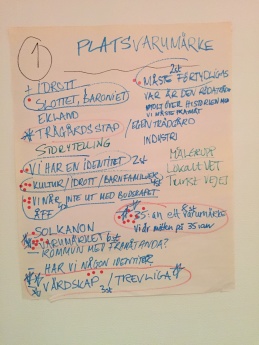 1
PLATSVARUMÄRKE
+ IDROTT
SLOTTET, BARONIET
EKLAND
TRÄGÅRDSSTAD / EGEN TRÄDGÅRD
STORYTELLING
VI HAR EN IDENTITET 2st
KULTUR/IDROTT/BARNFAMILJER
VI NÅR INTE UT MED BUDSKAPET
SOLKANON
VARUMÄRKET 6st
KOMMUN MED FRAMÅTANDA?
HAR VI NÅGON IDENTITET
VÄRDSKAP / TREVLIGA
3st
2st
MÅSTE FÖRTYDLIGAS
VAR ÄR DEN RÖDA
STOLT ÖVER HISTORIEN MEN
VI MÅSTE FRAMÅT
INDUSTRI
MÅLGRUPP
LOKALT VET
TYCKT VEJET
35:an ett varumärke
Vi är mitten på 35:an